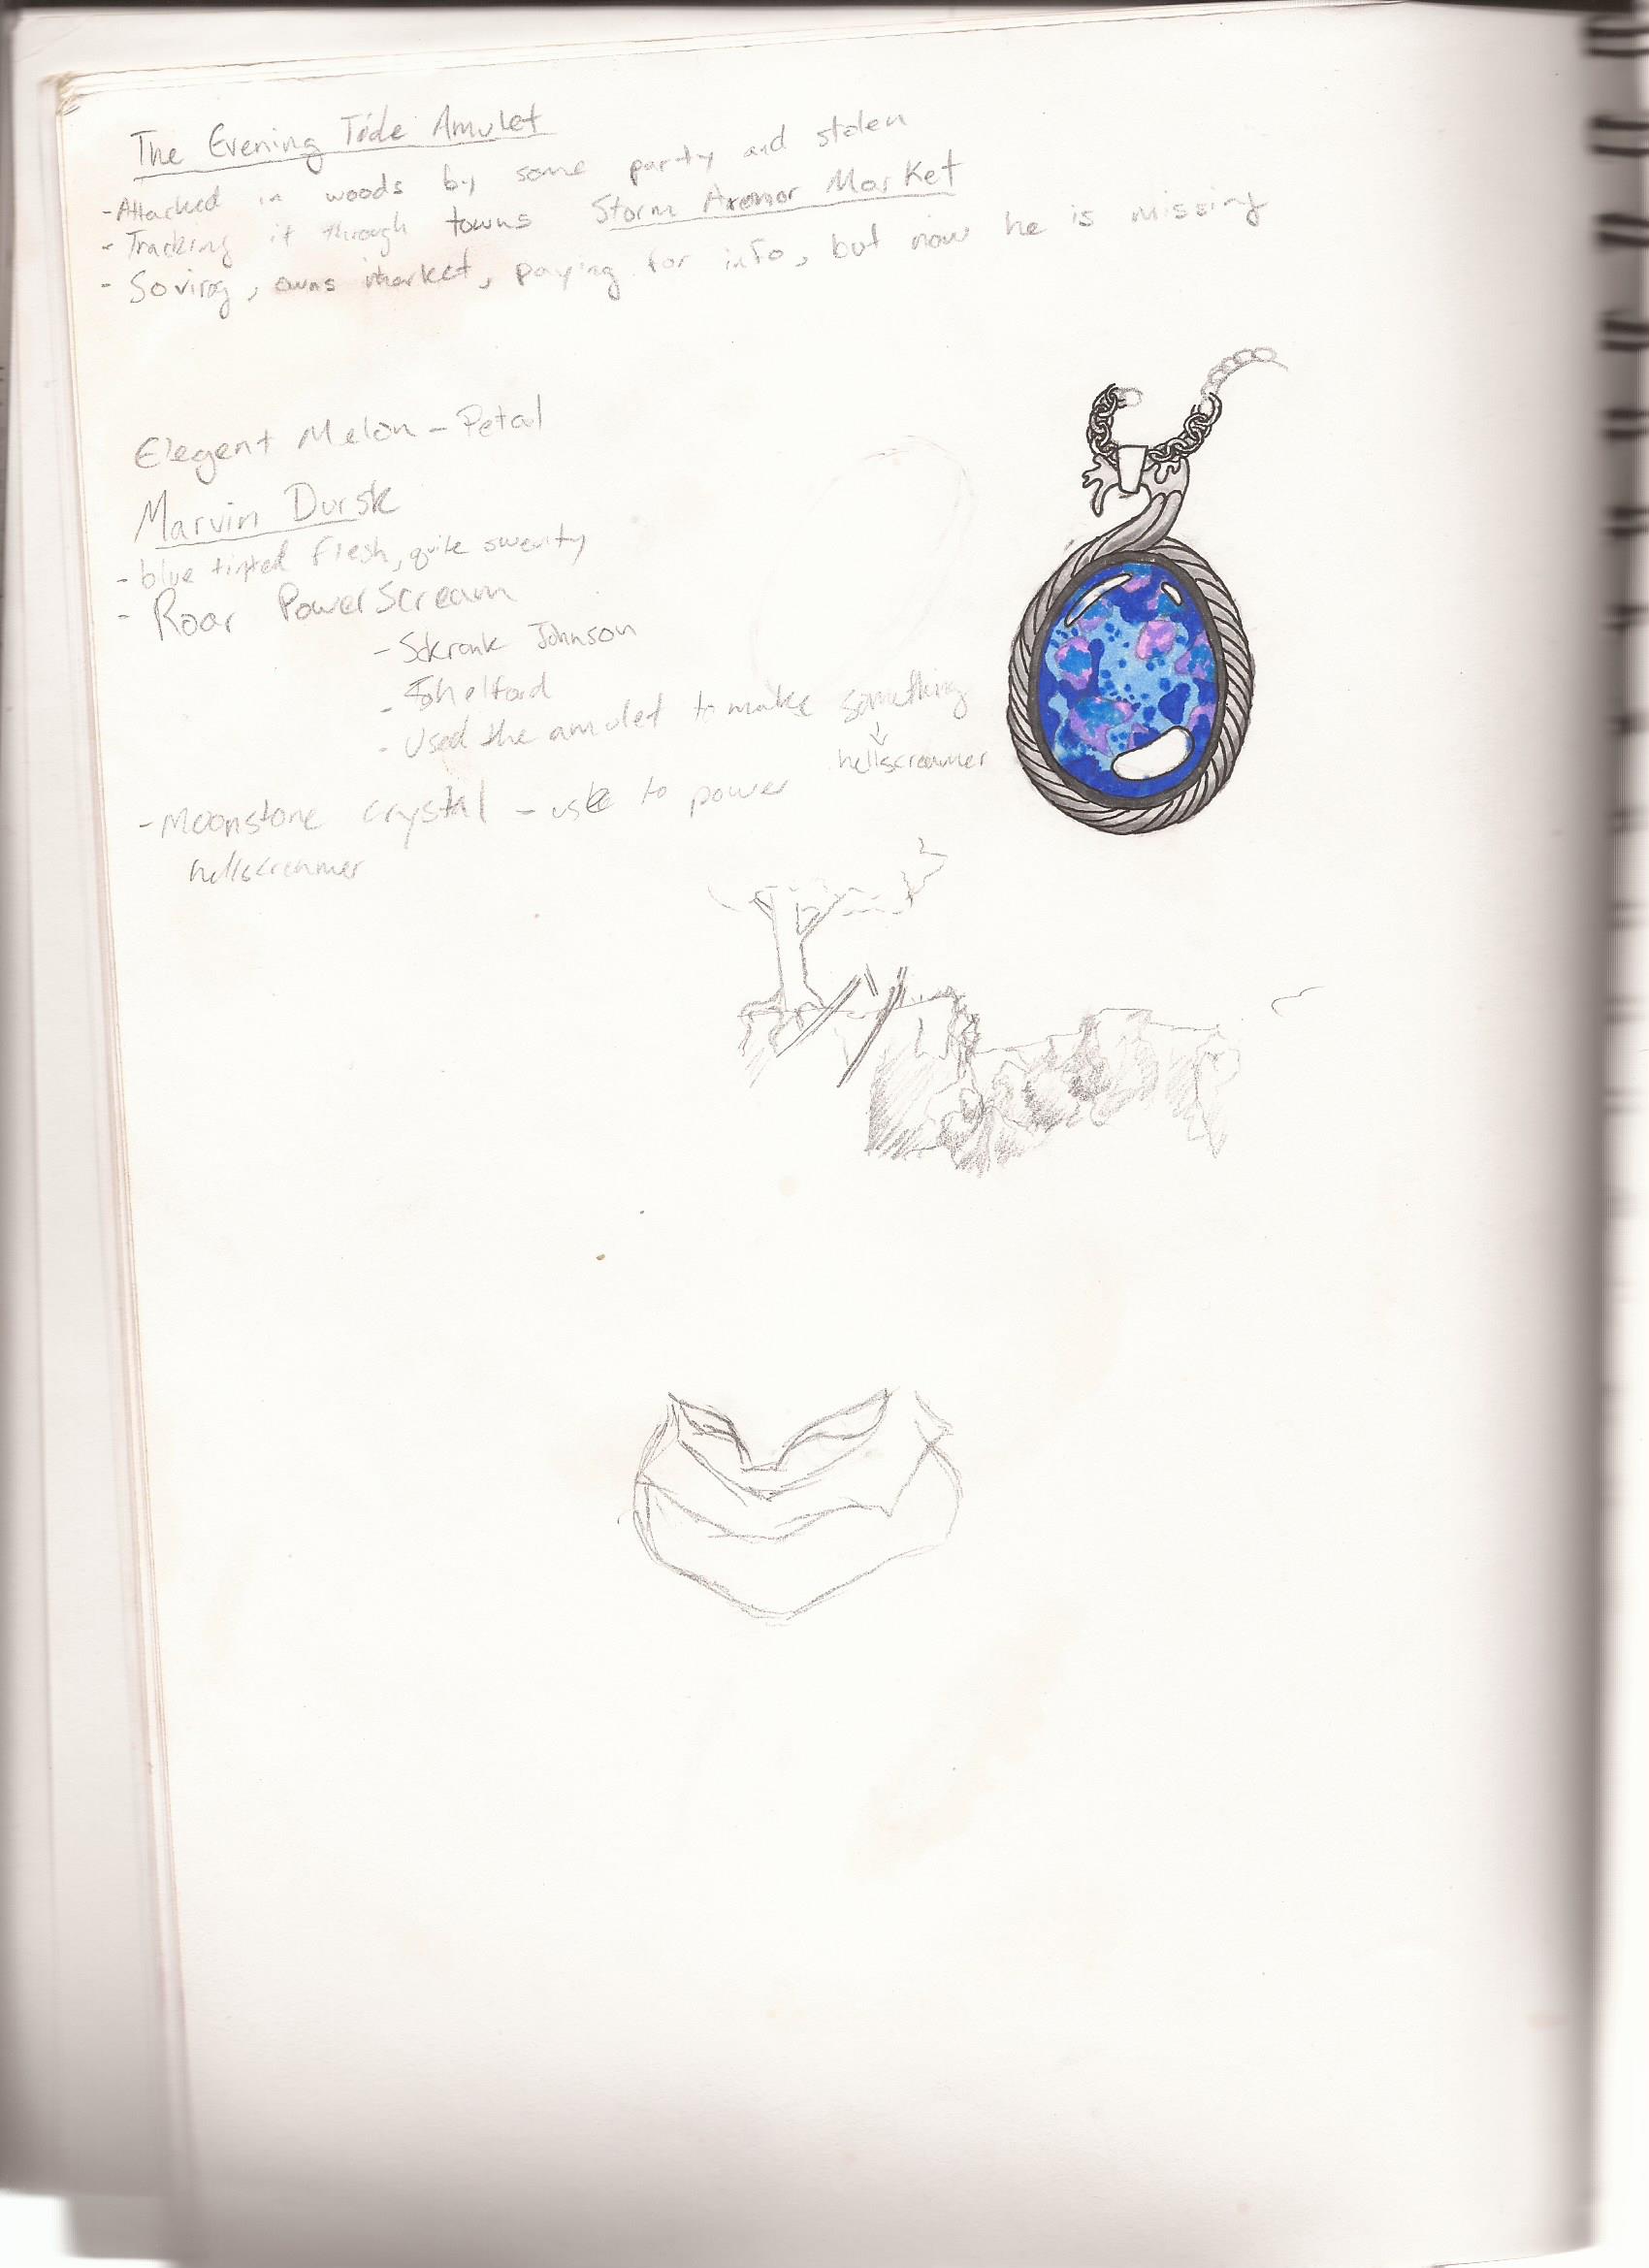 The Evening Tide Amulet
- Attacked in woods by some party and stolen
- Tracking it through towns Storm Axemor Market
- Soviroy, owns market, paying for info, but now he is missing
Elegent Melon - Petal
Marvin Dursk
- blue tinted flesh, quite sweaty
- Roar PowerScream
- Sckronk Johnson
- Shelford
- Used the amulet to make something
↓
hellscreamer
- Moonstone crystal - use to power
hellscreamer